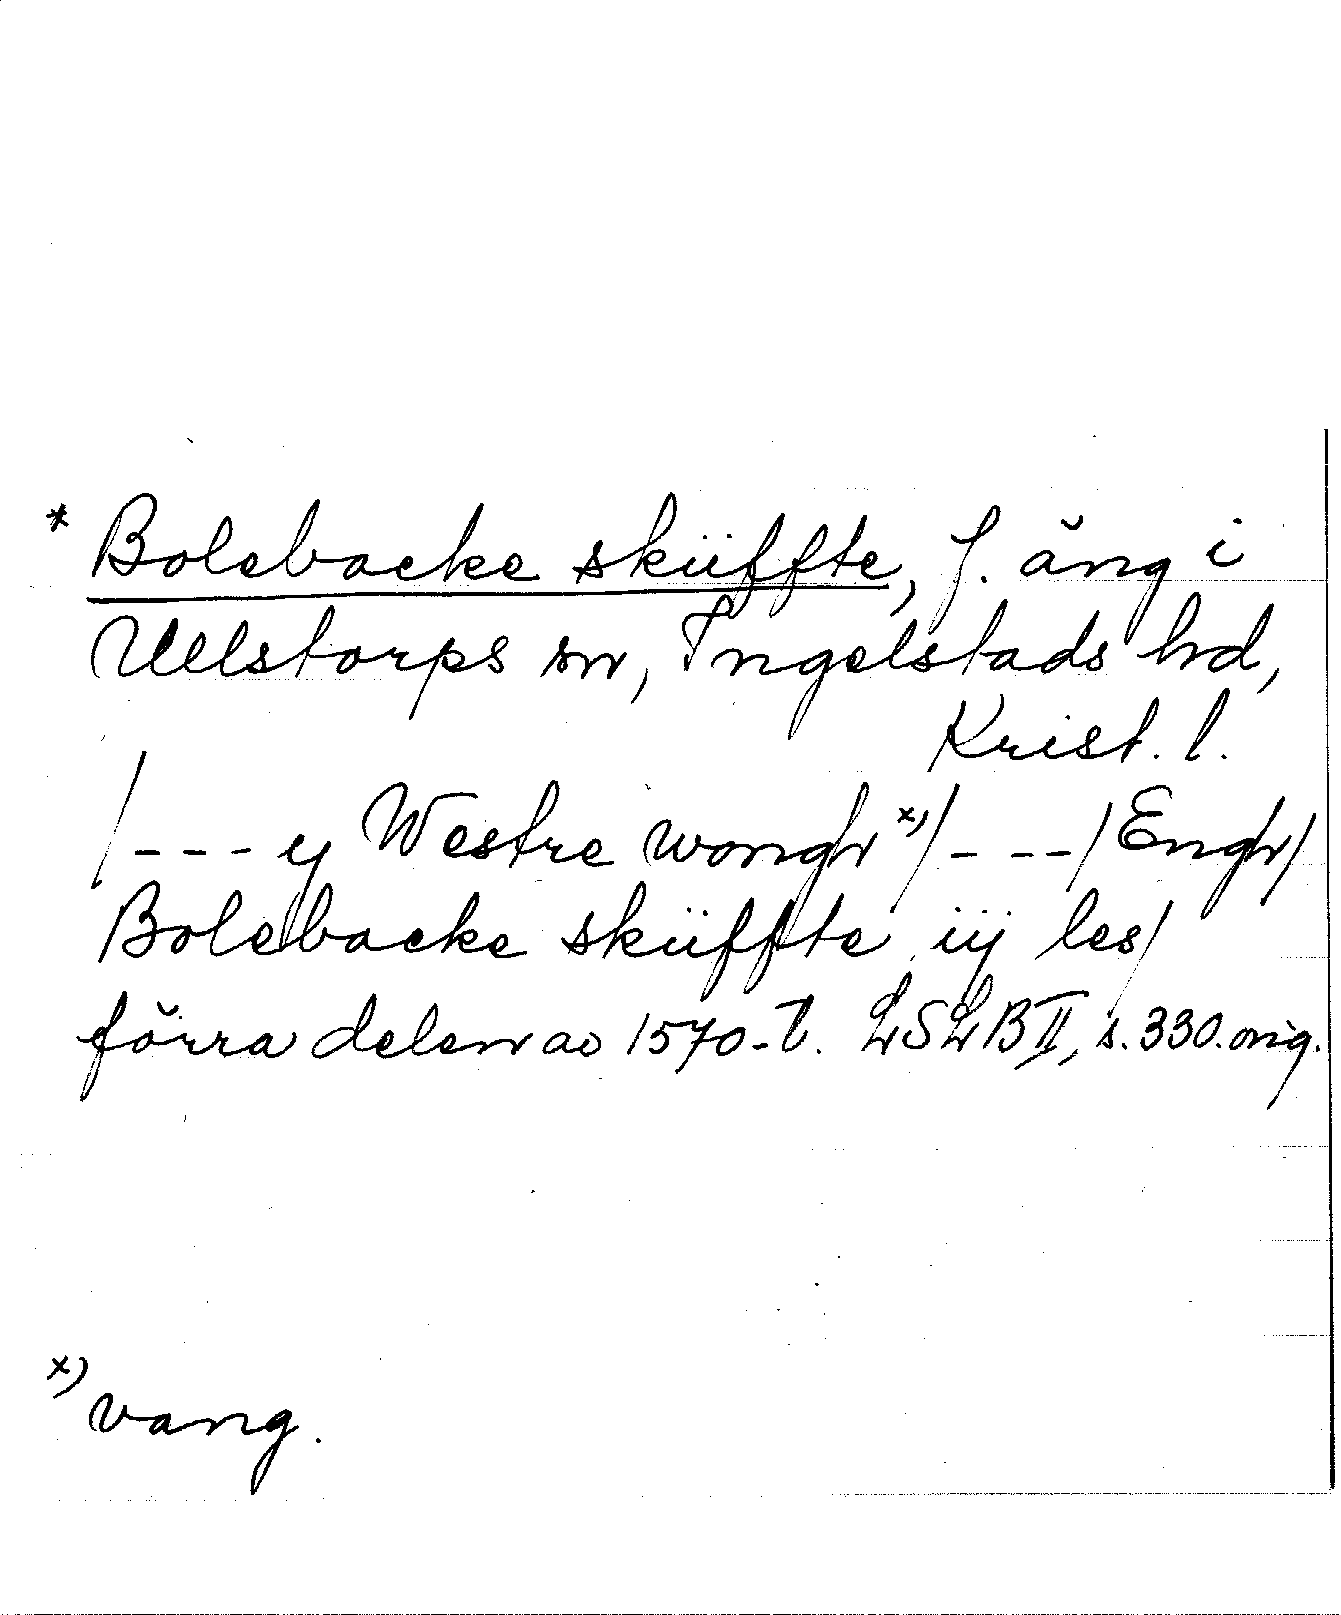 * Bolebacke sküffte, f. äng i
Ullstorps sn, Ingelstads hd,
Krist. l.
/--- y Westre wongh x)/---/Engh/
Bolebacke sküffte iij les/
förra delen av 1570-t. LSLB II, s. 330. orig.
x) vang.